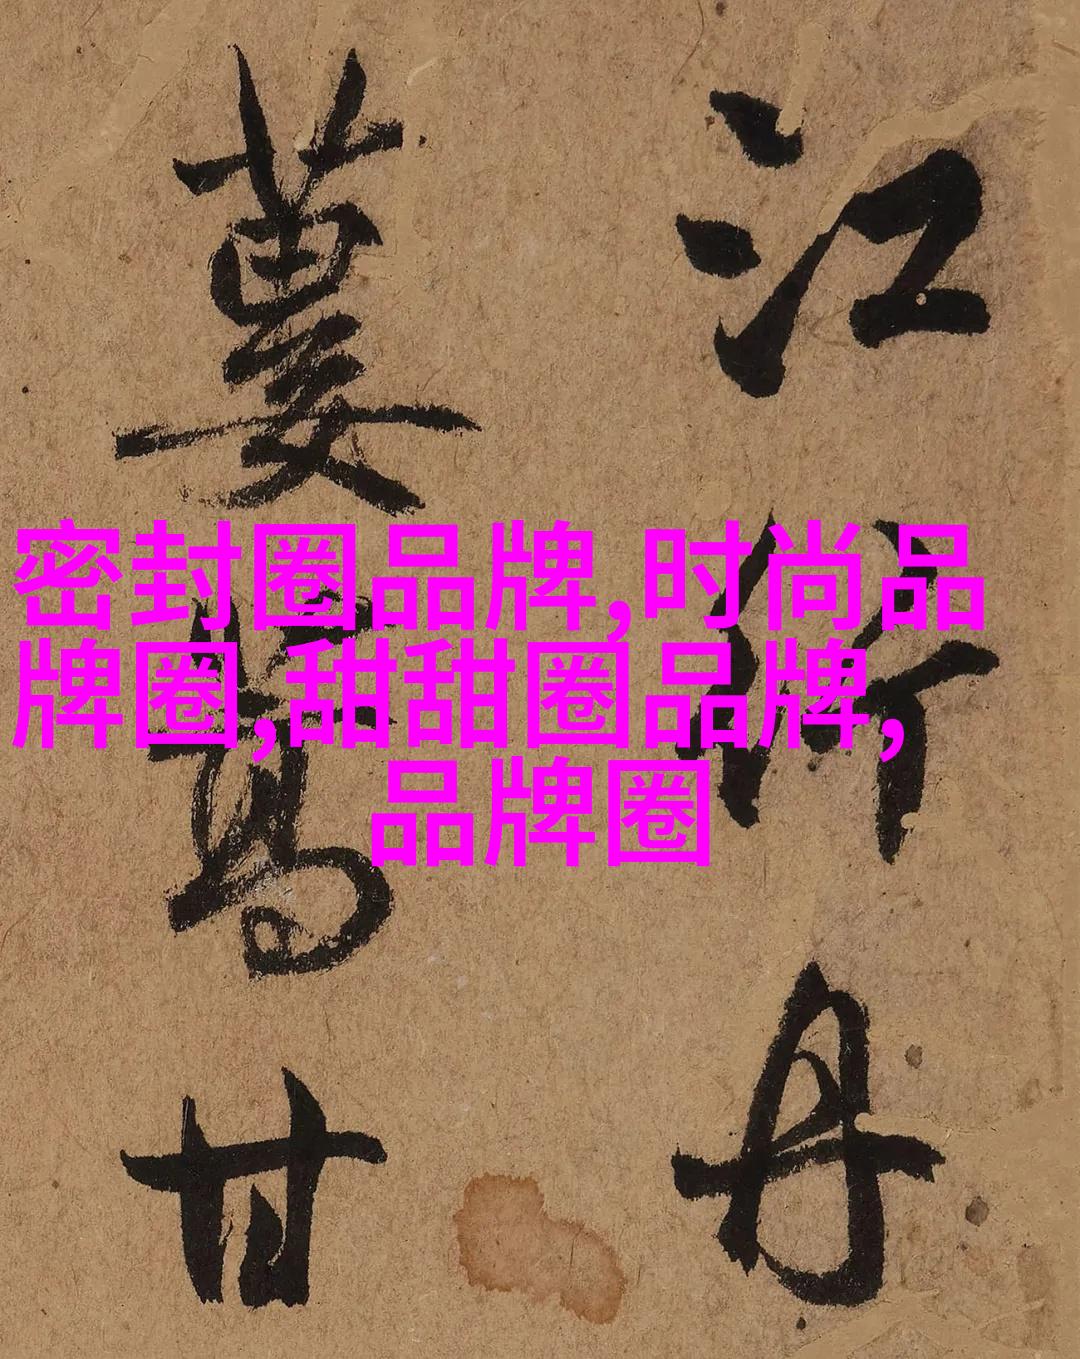 江行丹
蒌蒿甘
密封圈品牌,时尚品
牌圈,甜甜圈品牌,
品牌圈